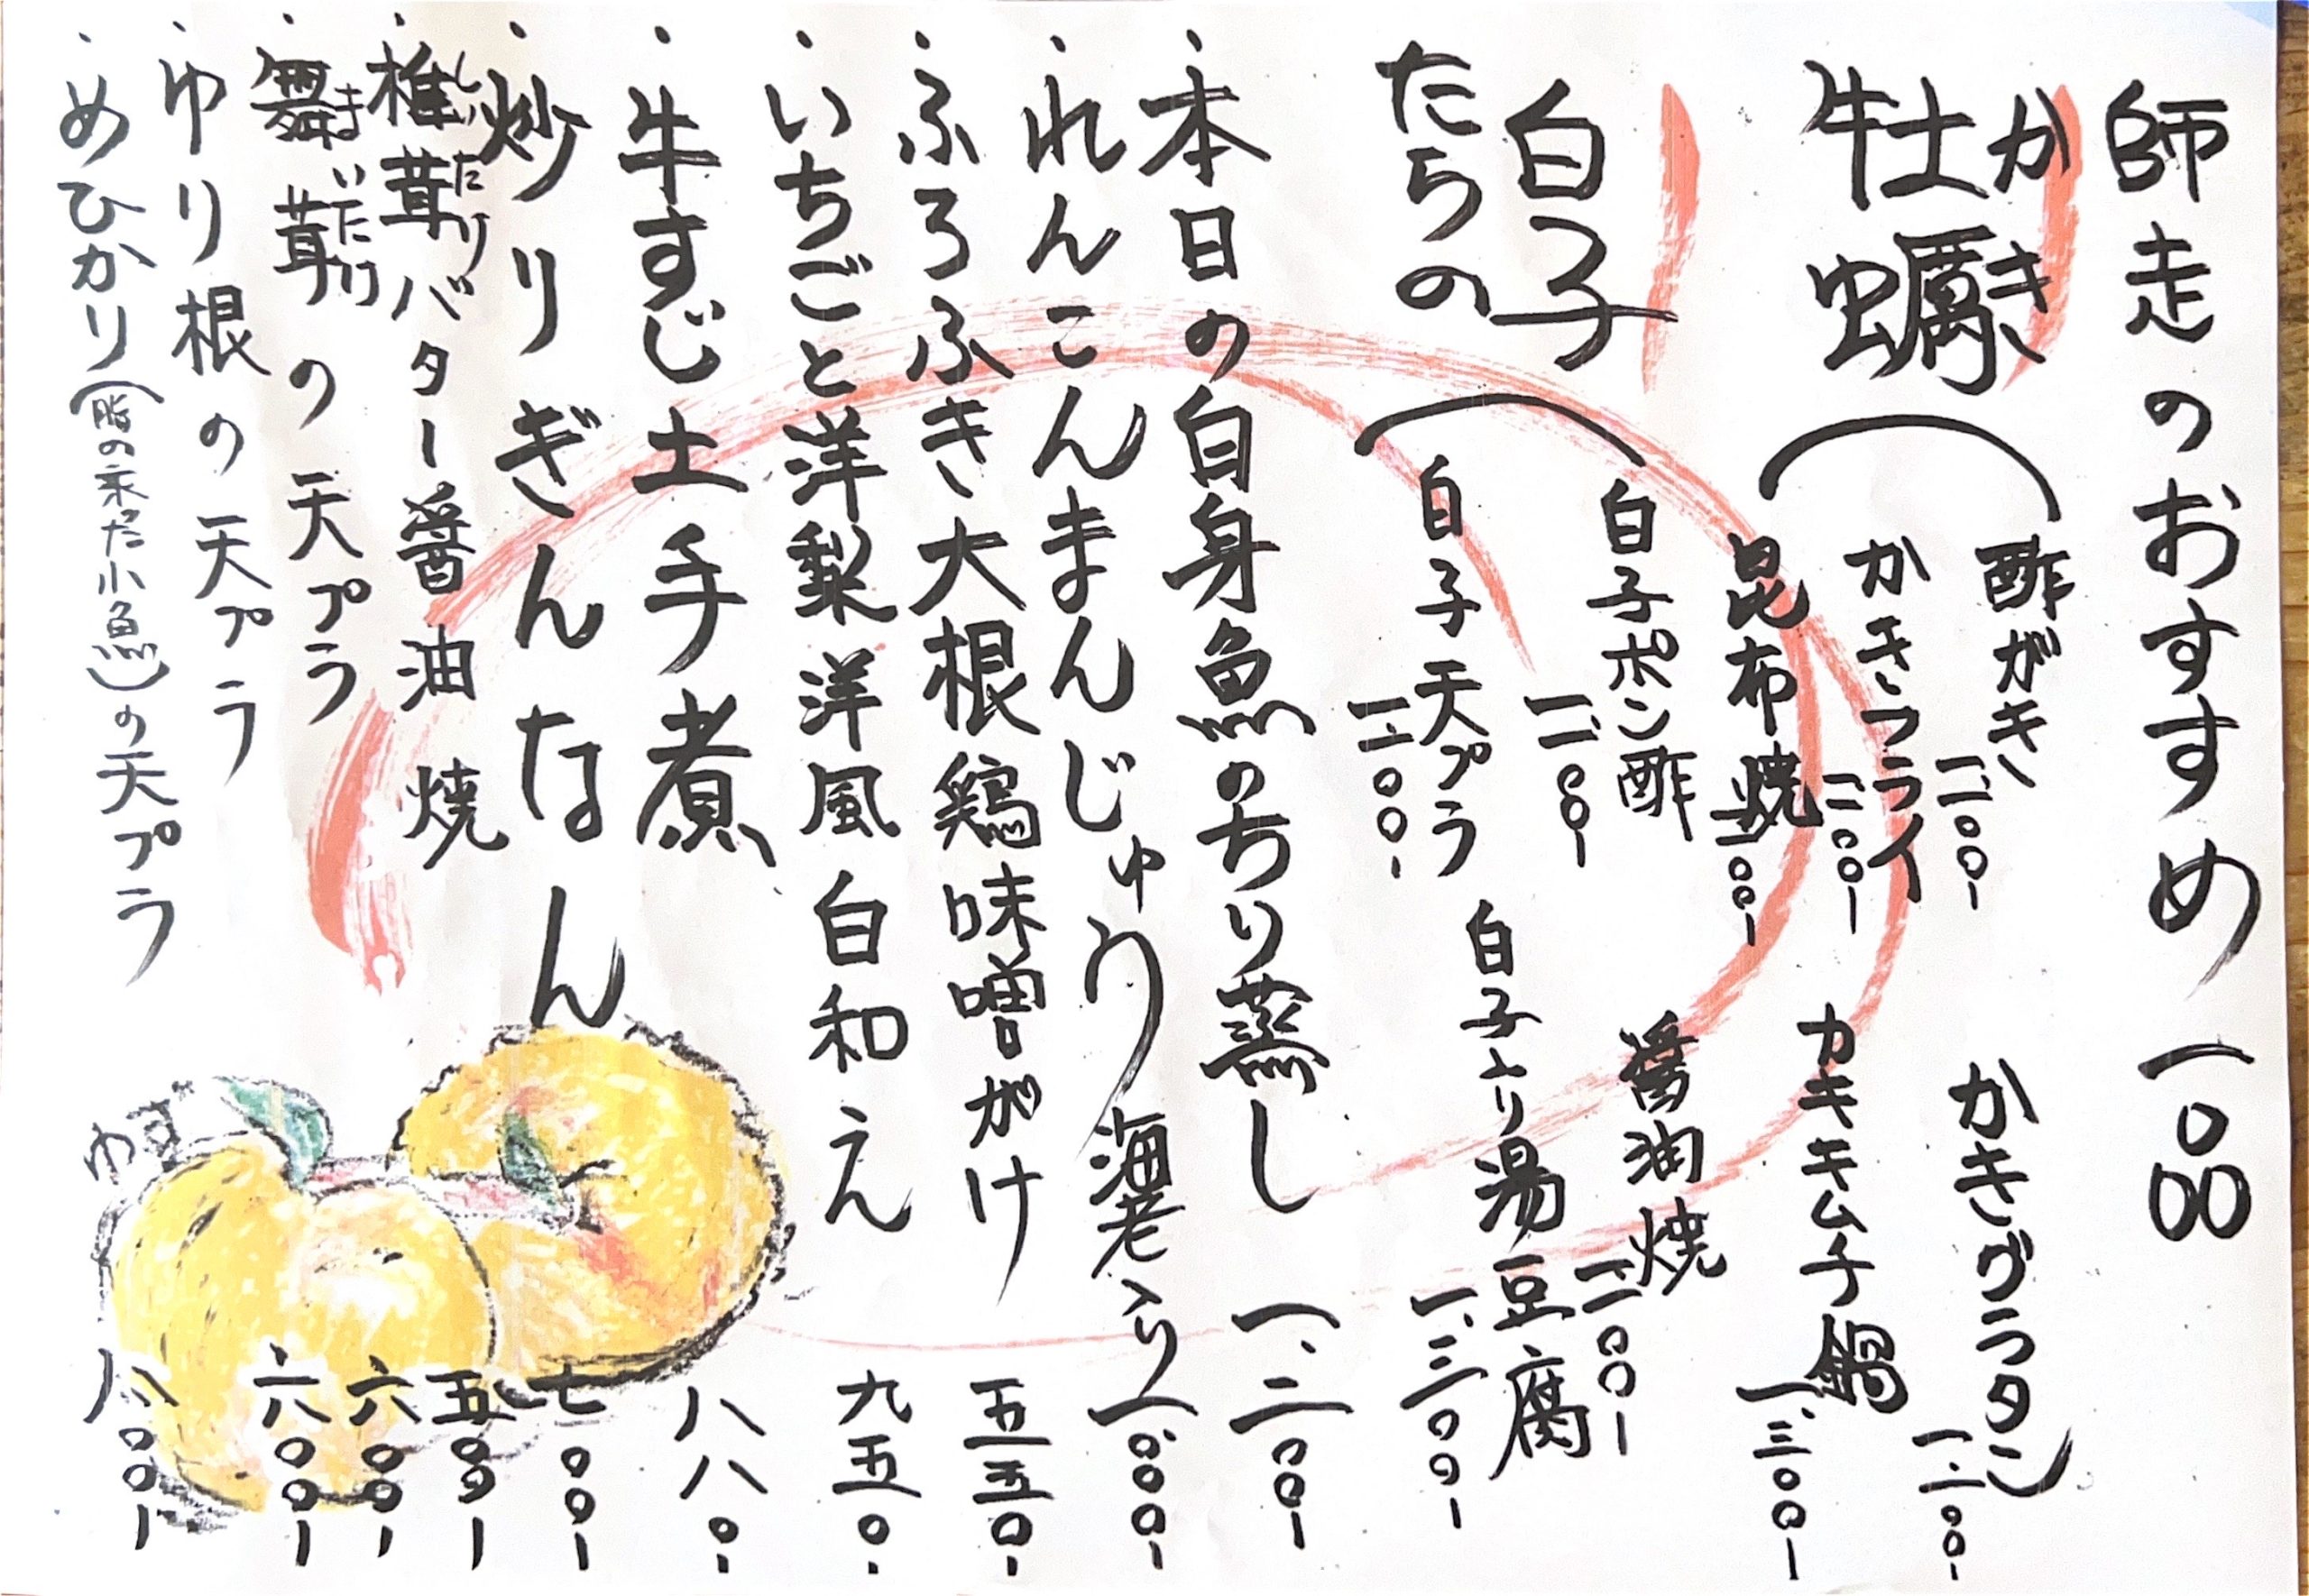 師走のおすすめ一品
かき
牡蠣
酢がき 一、二〇〇-
かきフライ 一、二〇〇-
昆布焼
かきグラタン 一、二〇〇-
カキキムチ鍋 一、三〇〇-
たちの
白子
白子ポン酢 一、二〇〇-
白子天プラ 一、二〇〇-
醤油焼 一、二〇〇-
白子入り湯豆腐 一、三〇〇-
・本日の白身魚のちり蒸し 一、二〇〇-
・れんこんまんじゅう海老入り 一、〇〇〇-
・ふろふき大根鶏味噌がけ 五五〇-
・いちごと洋梨洋風白和え 九五〇-
・牛すじ土手煮 八八〇-
・炒りぎんなん 七〇〇-
しいたけ
・椎茸バター醤油焼 五〇〇-
まいたけ
・舞茸の天プラ 六〇〇-
・ゆり根の天プラ 六〇〇-
・めひかり（脂の乗った小魚）の天プラ 八〇〇-
ゆず